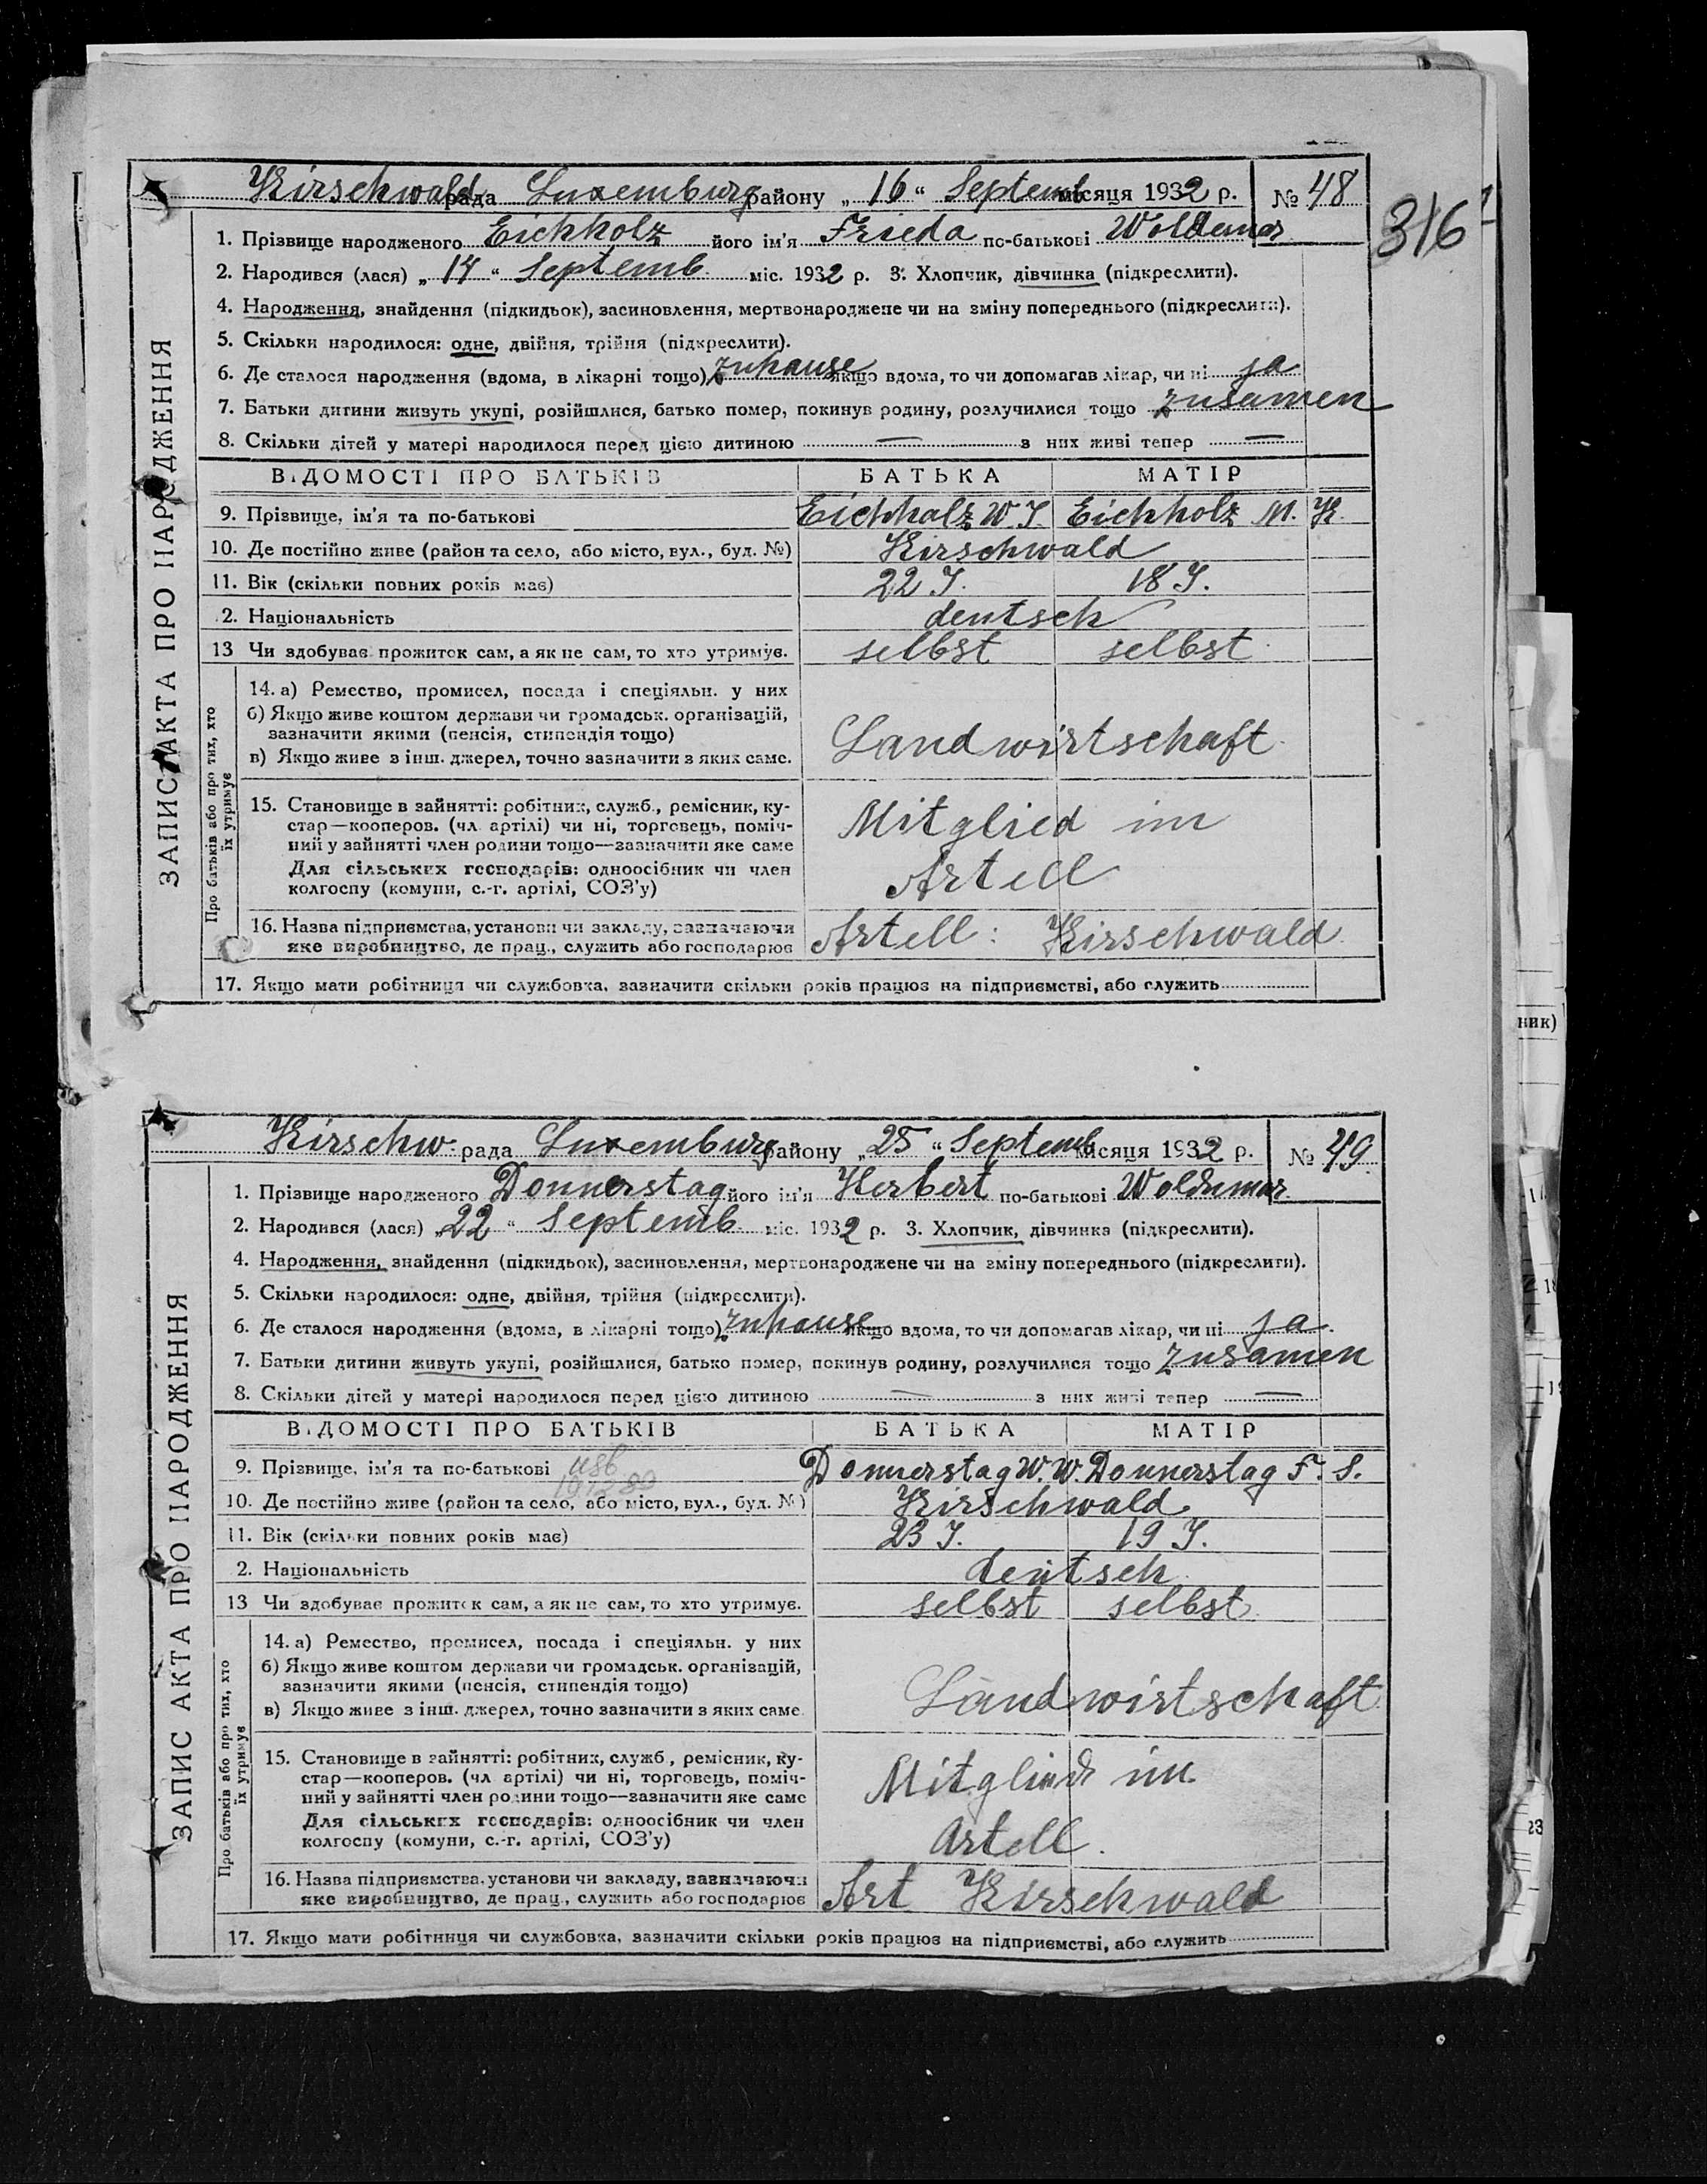 Kirschwald рада Luxemburg району „16“ Septemb місяця 1932 р. № 48
316
1. Прізвище народженого Eichholz його ім'я Frieda по-батькові Woldemar
2. Народився (лася) „14“ Septemb. міс. 1932 р. 3. Хлопчик, дівчинка (підкреслити).
4. Народження, знайдення (підкидьок), засиновлення, мертвонароджене чи на зміну попереднього (підкреслити).
5. Скільки народилося: одне, двійня, трійня (підкреслити).
6. Де сталося народження (вдома, в лікарні тощо) zuhause якщо вдома, то чи допомагав лікар, чи ні ja
7. Батьки дитини живуть укупі, розійшлися, батько помер, покинув родину, розлучилися тощо zusamen
8. Скільки дітей у матері народилося перед цією дитиною — з них живі тепер —
ЗАПИС АКТА ПРО НАРОДЖЕННЯ
ВІДОМОСТІ ПРО БАТЬКІВ БАТЬКА МАТІР
9. Прізвище, ім'я та по-батькові Eichholz W. J. Eichholz M. K.
10. Де постійно живе (район та село, або місто, вул., буд. №) Kirschwald
11. Вік (скільки повних років має) 22 J. 18 J.
2. Національність deutsch
13 Чи здобуває прожиток сам, а як не сам, то хто утримує. selbst selbst
Про батьків або про тих, хто їх утримує
14. а) Ремество, промисел, посада і спеціяльн. у них
б) Якщо живе коштом держави чи громадськ. організацій,
зазначити якими (пенсія, стипендія тощо)
в) Якщо живе з інш. джерел, точно зазначити з яких саме.
Landwirtschaft
15. Становище в зайнятті: робітник, служб., ремісник, ку-
стар—кооперов. (чл. артілі) чи ні, торговець, поміч-
ний у зайнятті член родини тощо—зазначити яке саме
Для сільських господарів: одноосібник чи член
колгоспу (комуни, с.-г. артілі, СОЗ'у)
Mitglied im
Artell
16. Назва підприємства, установи чи закладу, зазначаючи
яке виробництво, де прац., служить або господарює
Artell: Kirschwald
17. Якщо мати робітниця чи службовка, зазначити скільки років працює на підприємстві, або служить
Kirschw. рада Luxemburg району „25“ Septemb місяця 1932 р. № 49
1. Прізвище народженого Donnerstag його ім'я Herbert по-батькові Woldemar
2. Народився (лася) „22“ Septemb. міс. 1932 р. 3. Хлопчик, дівчинка (підкреслити).
4. Народження, знайдення (підкидьок), засиновлення, мертвонароджене чи на зміну попереднього (підкреслити).
5. Скільки народилося: одне, двійня, трійня (підкреслити).
6. Де сталося народження (вдома, в лікарні тощо) zuhause якщо вдома, то чи допомагав лікар, чи ні ja.
7. Батьки дитини живуть укупі, розійшлися, батько помер, покинув родину, розлучилися тощо zusamen
8. Скільки дітей у матері народилося перед цією дитиною — з них живі тепер —
ЗАПИС АКТА ПРО НАРОДЖЕННЯ
ВІДОМОСТІ ПРО БАТЬКІВ БАТЬКА МАТІР
9. Прізвище, ім'я та по-батькові Donnerstag W. W. Donnerstag F. S.
10. Де постійно живе (район та село, або місто, вул., буд. №) Kirschwald
11. Вік (скільки повних років має) 23 J. 19 J.
2. Національність deutsch
13 Чи здобуває прожиток сам, а як не сам, то хто утримує. selbst selbst
Про батьків або про тих, хто їх утримує
14. а) Ремество, промисел, посада і спеціяльн. у них
б) Якщо живе коштом держави чи громадськ. організацій,
зазначити якими (пенсія, стипендія тощо)
в) Якщо живе з інш. джерел, точно зазначити з яких саме
Landwirtschaft
15. Становище в зайнятті: робітник, служб., ремісник, ку-
стар—кооперов. (чл артілі) чи ні, торговець, поміч-
ний у зайнятті член родини тощо—зазначити яке саме
Для сільських господарів: одноосібник чи член
колгоспу (комуни, с.-г. артілі, СОЗ'у)
Mitglied im
Artell.
16. Назва підприємства, установи чи закладу, зазначаючи
яке виробництво, де прац., служить або господарює
Art Kirschwald
17. Якщо мати робітниця чи службовка, зазначити скільки років працює на підприємстві, або служить
ник)
23